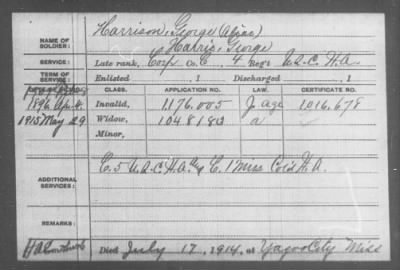 Harrison, George (Alias)
NAME OF SOLDIER: Harris, George
SERVICE: Late rank, Corp Co. C, 4 Reg't U.S.C. H.A.
TERM OF SERVICE: Enlisted , 1 Discharged , 1
CLASS. APPLICATION NO. LAW. CERTIFICATE NO.
1896 Apr. Invalid, 1.176.005 J age 1.016.678
1915 May 29 Widow, 1048180 a
Minor,
ADDITIONAL SERVICES: C. 5 U.S.C. H.A. C. 1 Miss Col'd H.A.
REMARKS:
Died July 17, 1914, at Yazoo City Miss